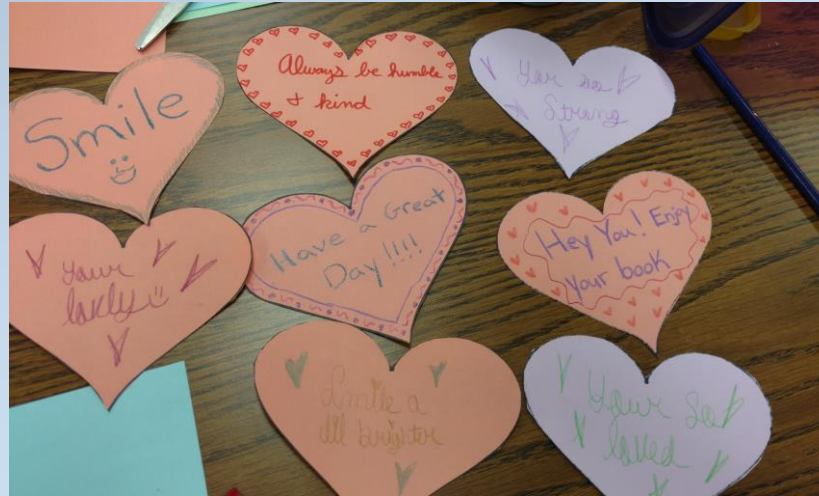 Smile
Always be humble
+ kind
You so
Strong
Your
Have a Great
Day!!!!
Hey You! Enjoy
your book
Smile a
brighter
Your So
loved